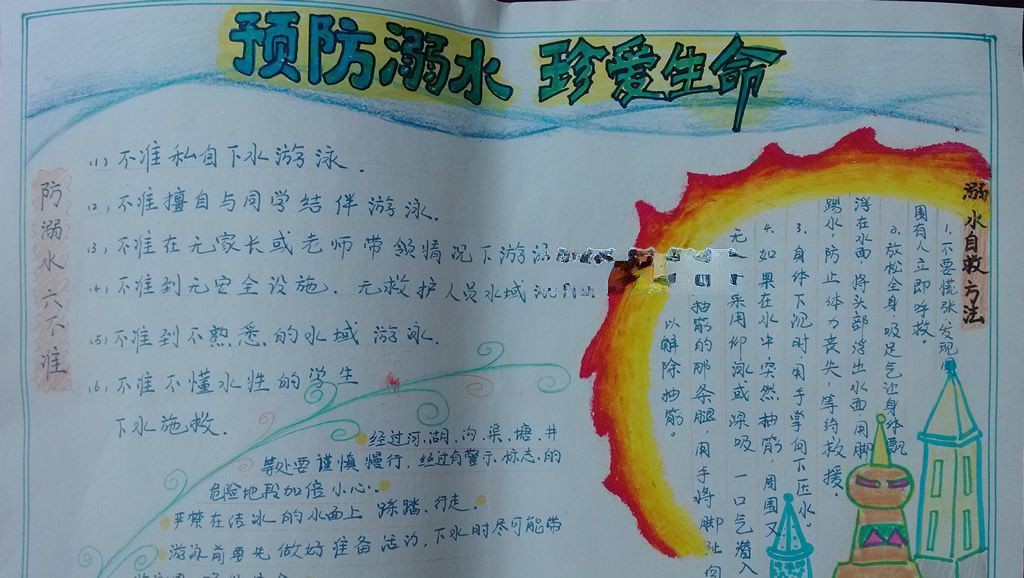 预防溺水 珍爱生命
防溺水六不准
(1)不准私自下水游泳.
(2)不准擅自与同学结伴游泳.
(3)不准在无家长或老师带领情况下游泳
(4)不准到无安全设施、无救护人员水域
(5)不准到不熟悉的水域游泳.
(6)不准不懂水性的学生
下水施救.
经过河、湖、沟、渠、塘、井
等处要谨慎慢行,经过有警示标志的
危险地段加倍小心.
严禁在结冰的水面上踩踏、行走.
游泳前要先做好准备活动,下水时尽可能带
溺水自救方法
1.不要慌张,发现
围有人立即呼救。
2.放松全身,吸足气让身体飘
浮在水面,将头部浮出水面,用脚
踢水,防止体力丧失,等待救援。
3.身体下沉时,用手掌向下压水。
4.如果在水中,突然抽筋,周围又
无 采用仰泳或深吸一口气潜入
抽筋的那条腿,用手将脚趾向
以解除抽筋。